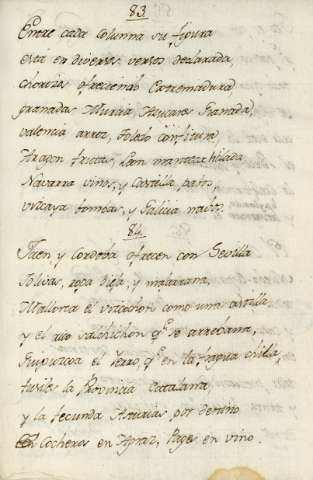 83.
Entre cada columna su figura
está en diversos versos declarada,
chorizos ofreciendo Extremadura
granadas Murcia, Azucares Granada,
valencia arroz, toledo confitura,
Aragon frutas, Leon manteca hilada
Navarra vinos, y Castilla, paños,
vizcaya bombas, y Galicia nabos.
84.
Jaen y Cordoba ofrecen con Sevilla
olivas, ropa vieja, y
Mallorca el como una castilla,
y el rico salchichon q.e se arrebana,
Guipuzcoa el yerro, q.e en la fragua chilla,
fusiles la Provincia Catalana
y la fecunda Asturias por destino
Cocheros en Agraz, Pages en vino.